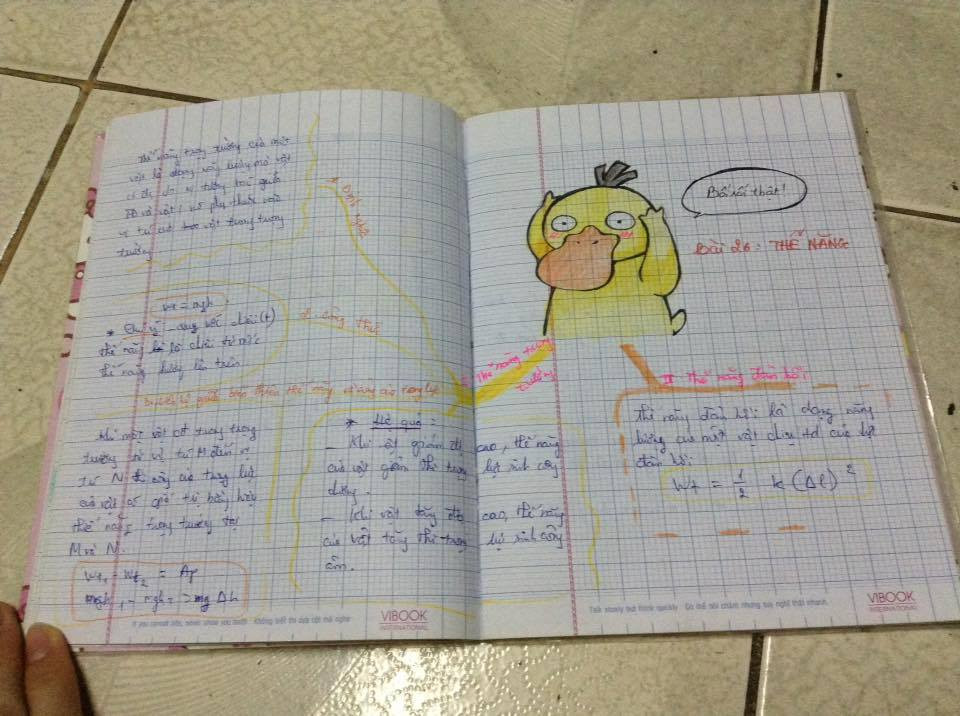 Thế năng trọng trường của một
vật là dạng năng lượng mà vật
có do tương tác giữa
TĐ và vật; nó phụ thuộc vào
vị trí của vật trong trọng
trường
1. Định nghĩa
Wt = mgh
* Chú ý
thế năng là
thế năng hướng lên trên.
2. Công thức
3. Liên hệ giữa biến thiên thế năng và công của trọng lực
Khi một vật cđ trong trọng
trường từ vị trí M đến vị
trí N thì công của trọng lực
của vật có giá trị bằng hiệu
thế năng trọng trường tại
M và N.
Wt1 - Wt2 = Ap
* Hệ quả:
- Khi vật giảm độ cao, thế năng
của vật giảm thì trọng lực sinh công
dương.
- Khi vật tăng độ cao, thế năng
của vật tăng thì trọng lực sinh công
âm.
If you cannot bite, never show you teeth Không biết thì dựa cột mà nghe
VIBOOK
INTERNATIONAL
Bối rối thật!
Bài 26: THẾ NĂNG
I Thế năng trọng
trường
II Thế năng đàn hồi:
Thế năng đàn hồi: là dạng năng
lượng của một vật chịu td của lực
đàn hồi:
Wt = 1/2 k (Δl)²
Talk slowly but think quickly Có thể nói chậm nhưng suy nghĩ thật nhanh
VIBOOK
INTERNATIONAL